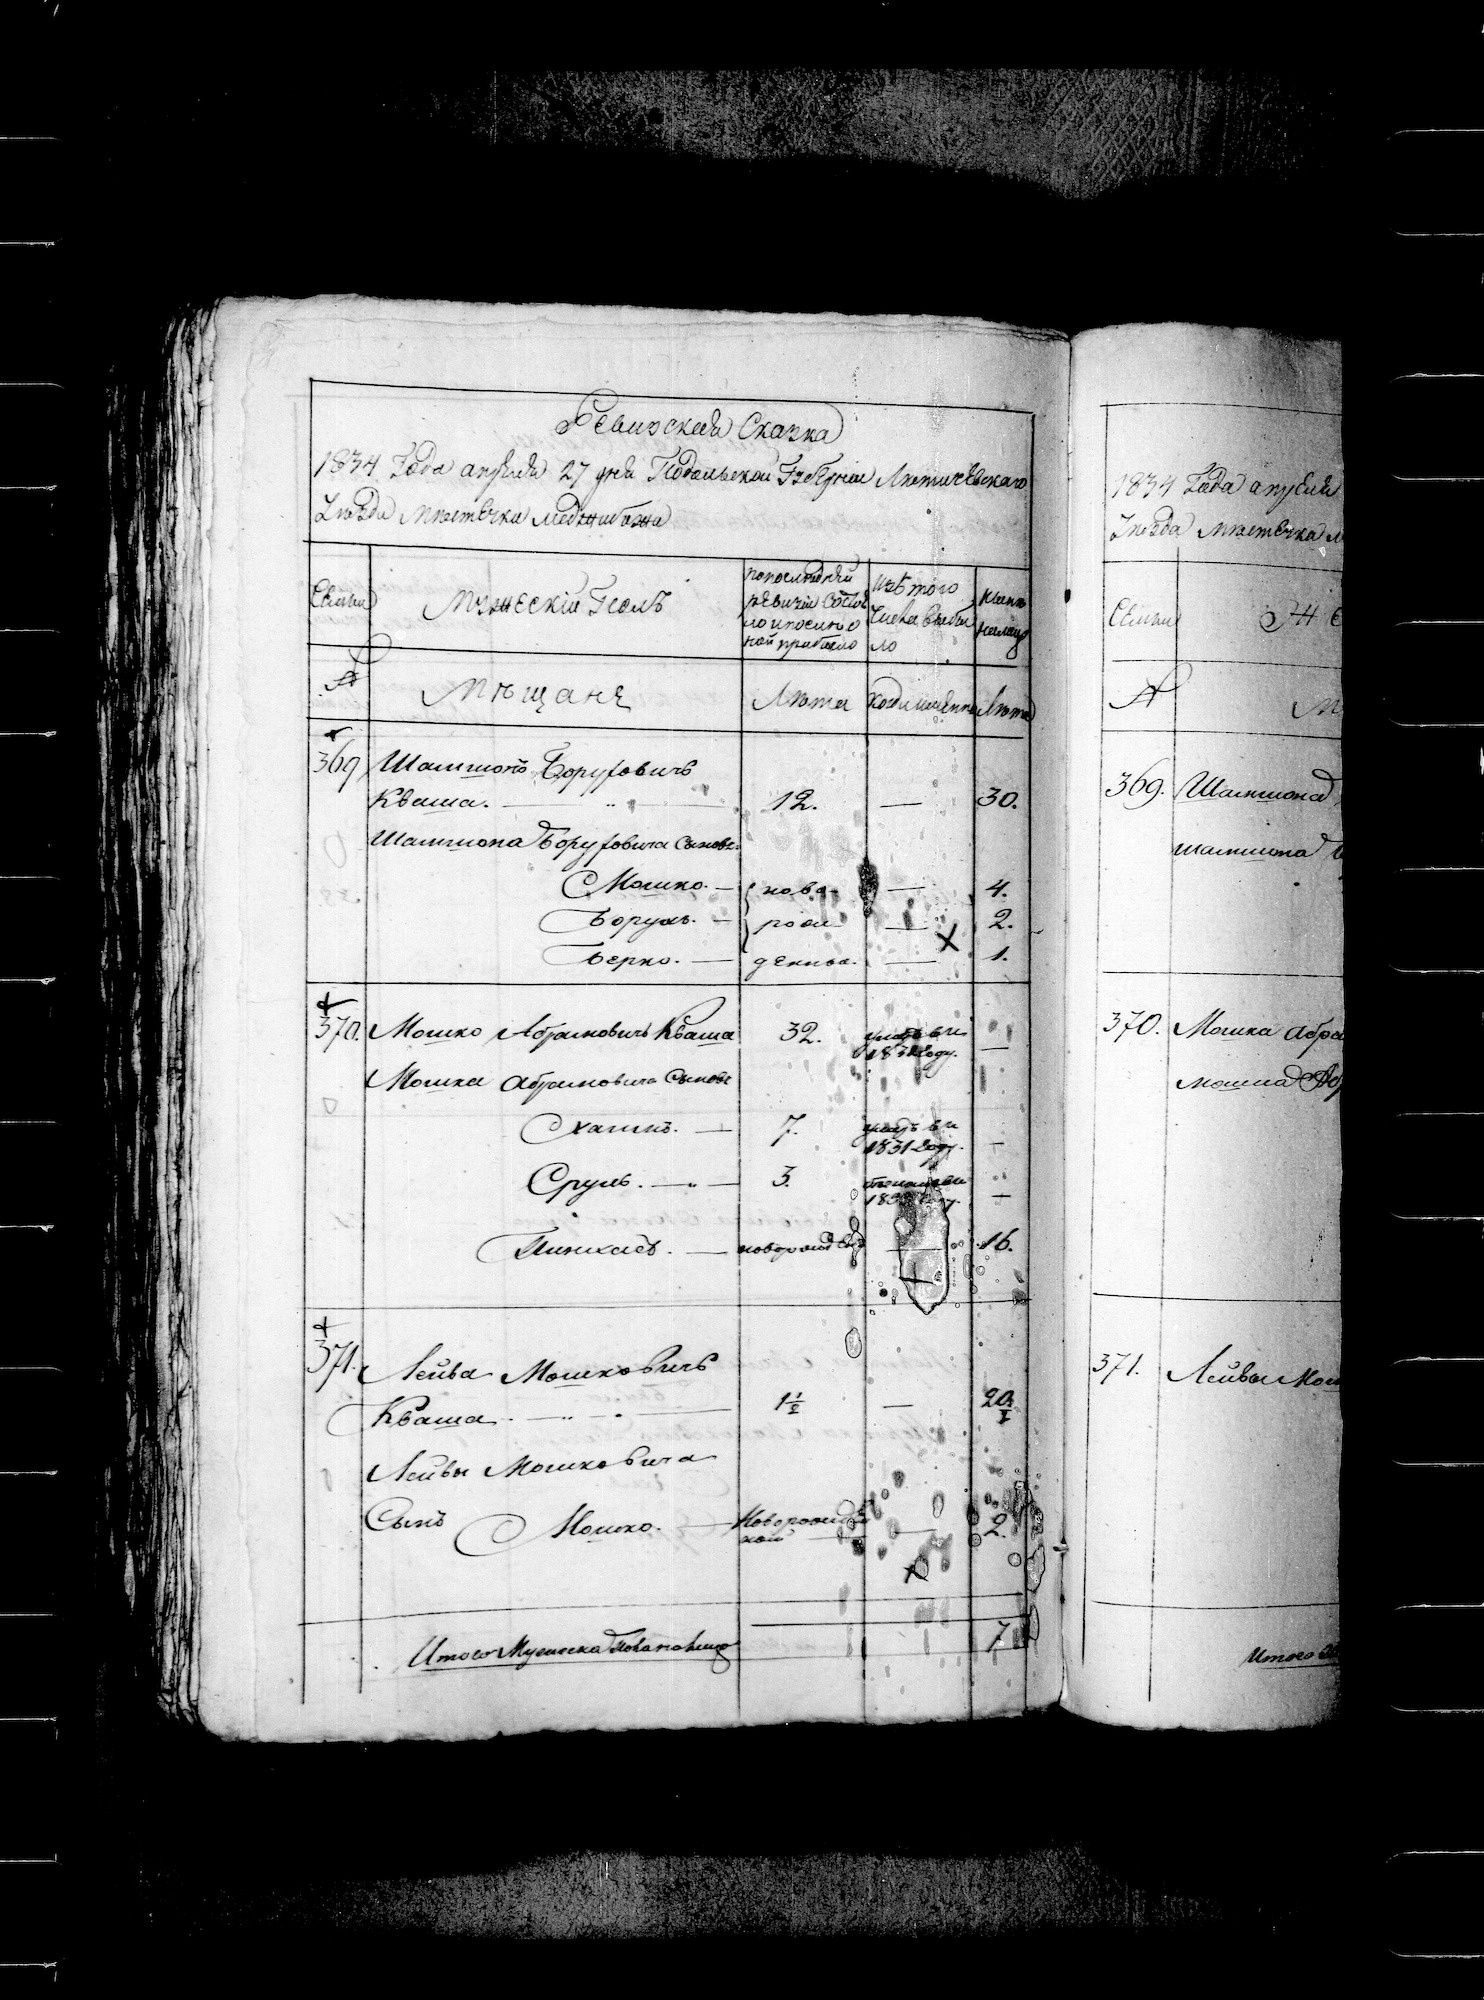 Ревизская Сказка
1834 Года апреля 27 дня Подольской Губернии Летичевскаго
Уезда местечка Меджибожа
Семьи
Мужеский Полъ
по последней
ревизіи состоя
ло и после о
ной прибыло
Изъ того
числа выбы
ло
ныне
налицо
№
Мещане
Лета
Когда именно
Лета
369
Шамшонъ Боруховичь
Кваша. 12. — 30.
Шамшона Боруховича Сыновья
Мошко. — ново — 4.
Борухъ. — рож — 2.
Берко. — денные. — 1.
370. Мошко Абрамовичь Кваша 32. —
Мошка Абрамовича Сыновья
Хаимъ. — 7. 1831 году. —
Сруль. — 3. —
Пинхасъ. — новорожд — 16.
371. Лейба Мошковичь
Кваша. 1½ — 20.
Лейбы Мошковича
Сынъ Мошко. — Новорожден
ной — 2.
Итого Мужеска Пола наличныхъ 7
1834 Года апреля
Уезда местечка
Семьи
№
369. Шамшона
Шамшона
370. Мошка Абра
Мошка
371. Лейбы Мош
Итого